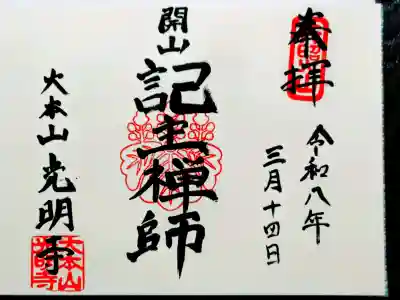 奉拝
令和八年
三月十四日
開山
記主禅師
大本山光明寺
大本山
光明寺